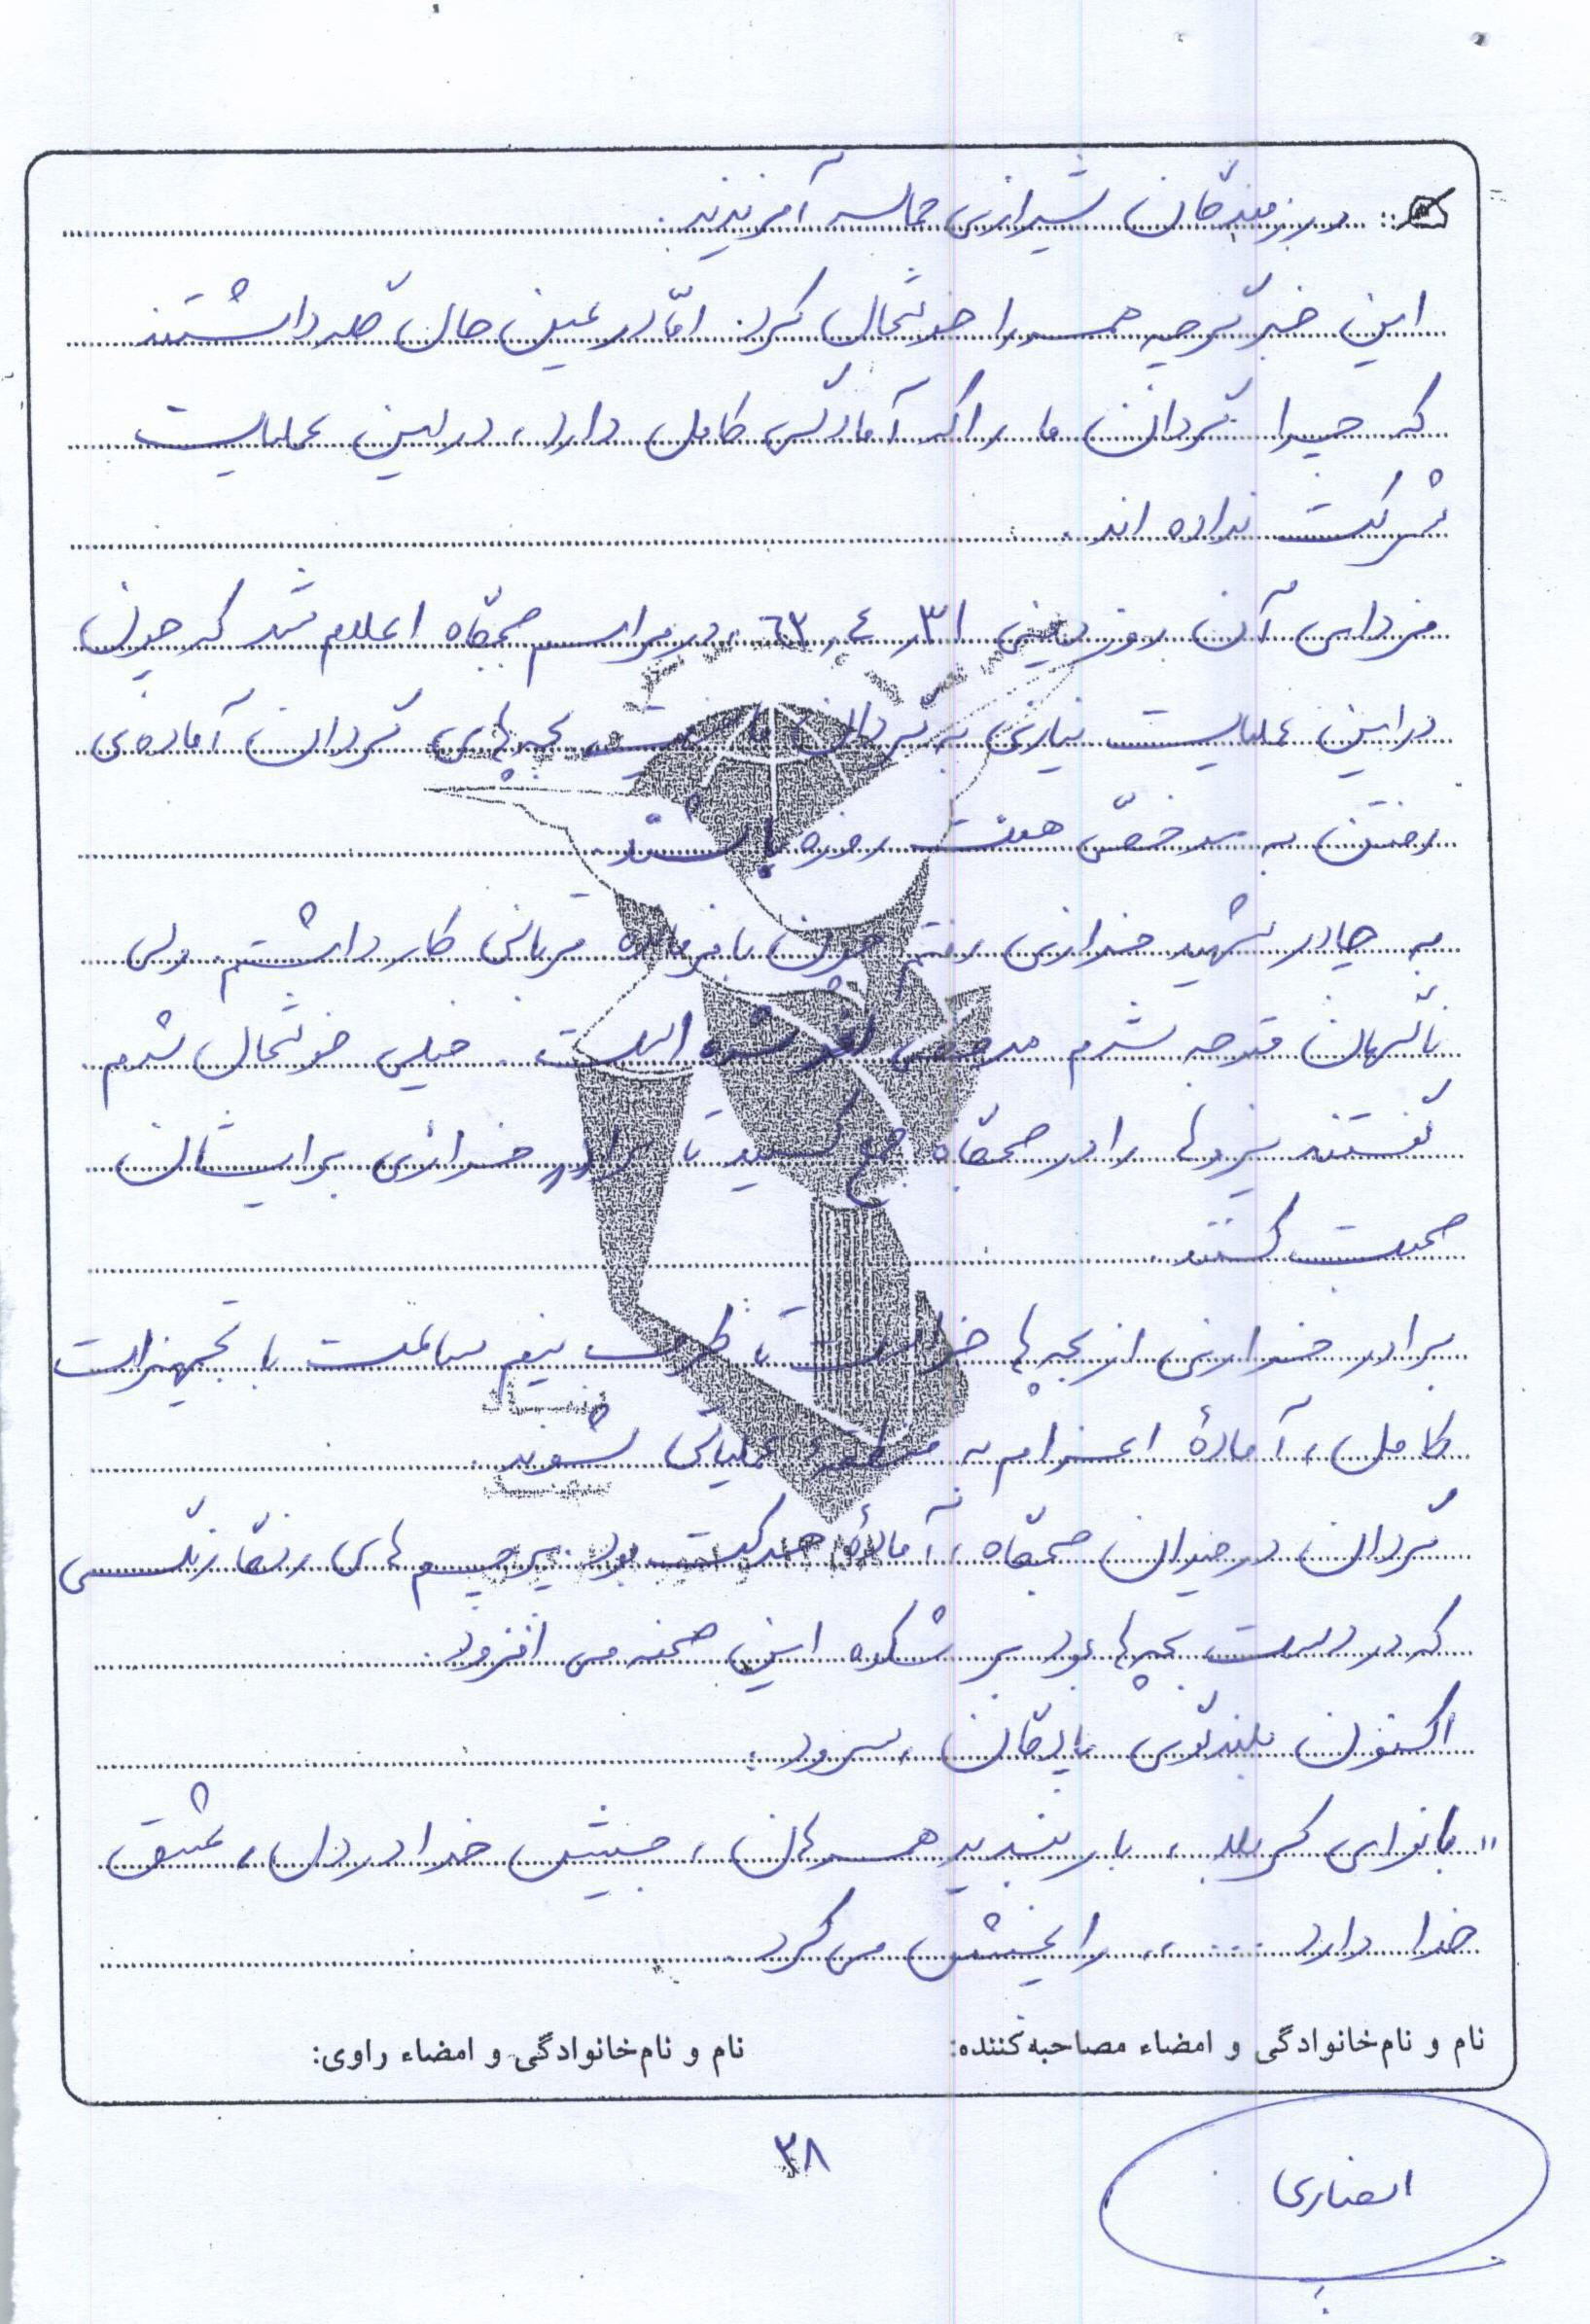 و رزمندگان شیرازی حماسه آفریدند.
این خبر گرچه همه را خوشحال کرد. امّا در عین حال گله داشتند
که چرا گردان ما را که آمادگی کامل دارد، در این عملیات
شرکت نداده اند.
فردای آن روز یعنی ۳۱ر۴ر۶۳، در مراسم صبحگاه اعلام شد که چون
در این عملیات نیازی به گردان ما نیست، بچه‌های گردان آماده‌ی
رفتن به مرخصّی هفت روزه باشند.
به چادر شهید خرازی رفتم چون با فرمانده قربانی کار داشتم. ولی
ناگهان متوجه شدم مرخصی لغو شده است. خیلی خوشحال شدم
گفتند نیروها را در صبحگاه جمع کنید تا برادر خرازی برایشان
صحبت کنند.
برادر خرازی از بچه‌ها خواست تا ظرف نیم ساعت با تجهیزات
کامل، آمادهٔ اعزام به منطقهٔ عملیاتی شوند.
گردان در میدان صبحگاه، آمادهٔ حرکت بود. پرچم‌های رنگارنگی
که در دست بچه‌ها بود بر شکوه این صحنه می افزود.
اکنون بلندگوی پادگان، سرود:
"با نوای کربلا، بار بندید همرهان، جنبش خدا در دل، عشق
خدا دارد ......،، را پخش می کرد.
نام و نام‌خانوادگی و امضاء مصاحبه‌کننده:
نام و نام‌خانوادگی و امضاء راوی:
۳۸
انصاری